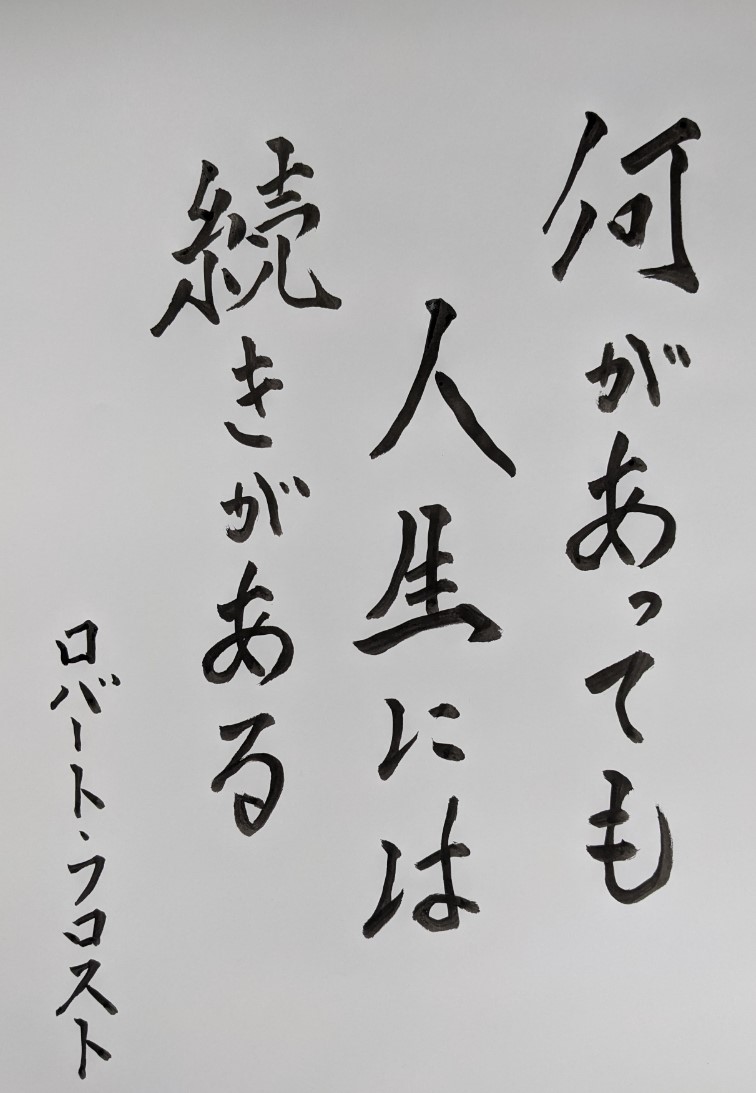 何があっても
人生には
続きがある
ロバート・フロスト